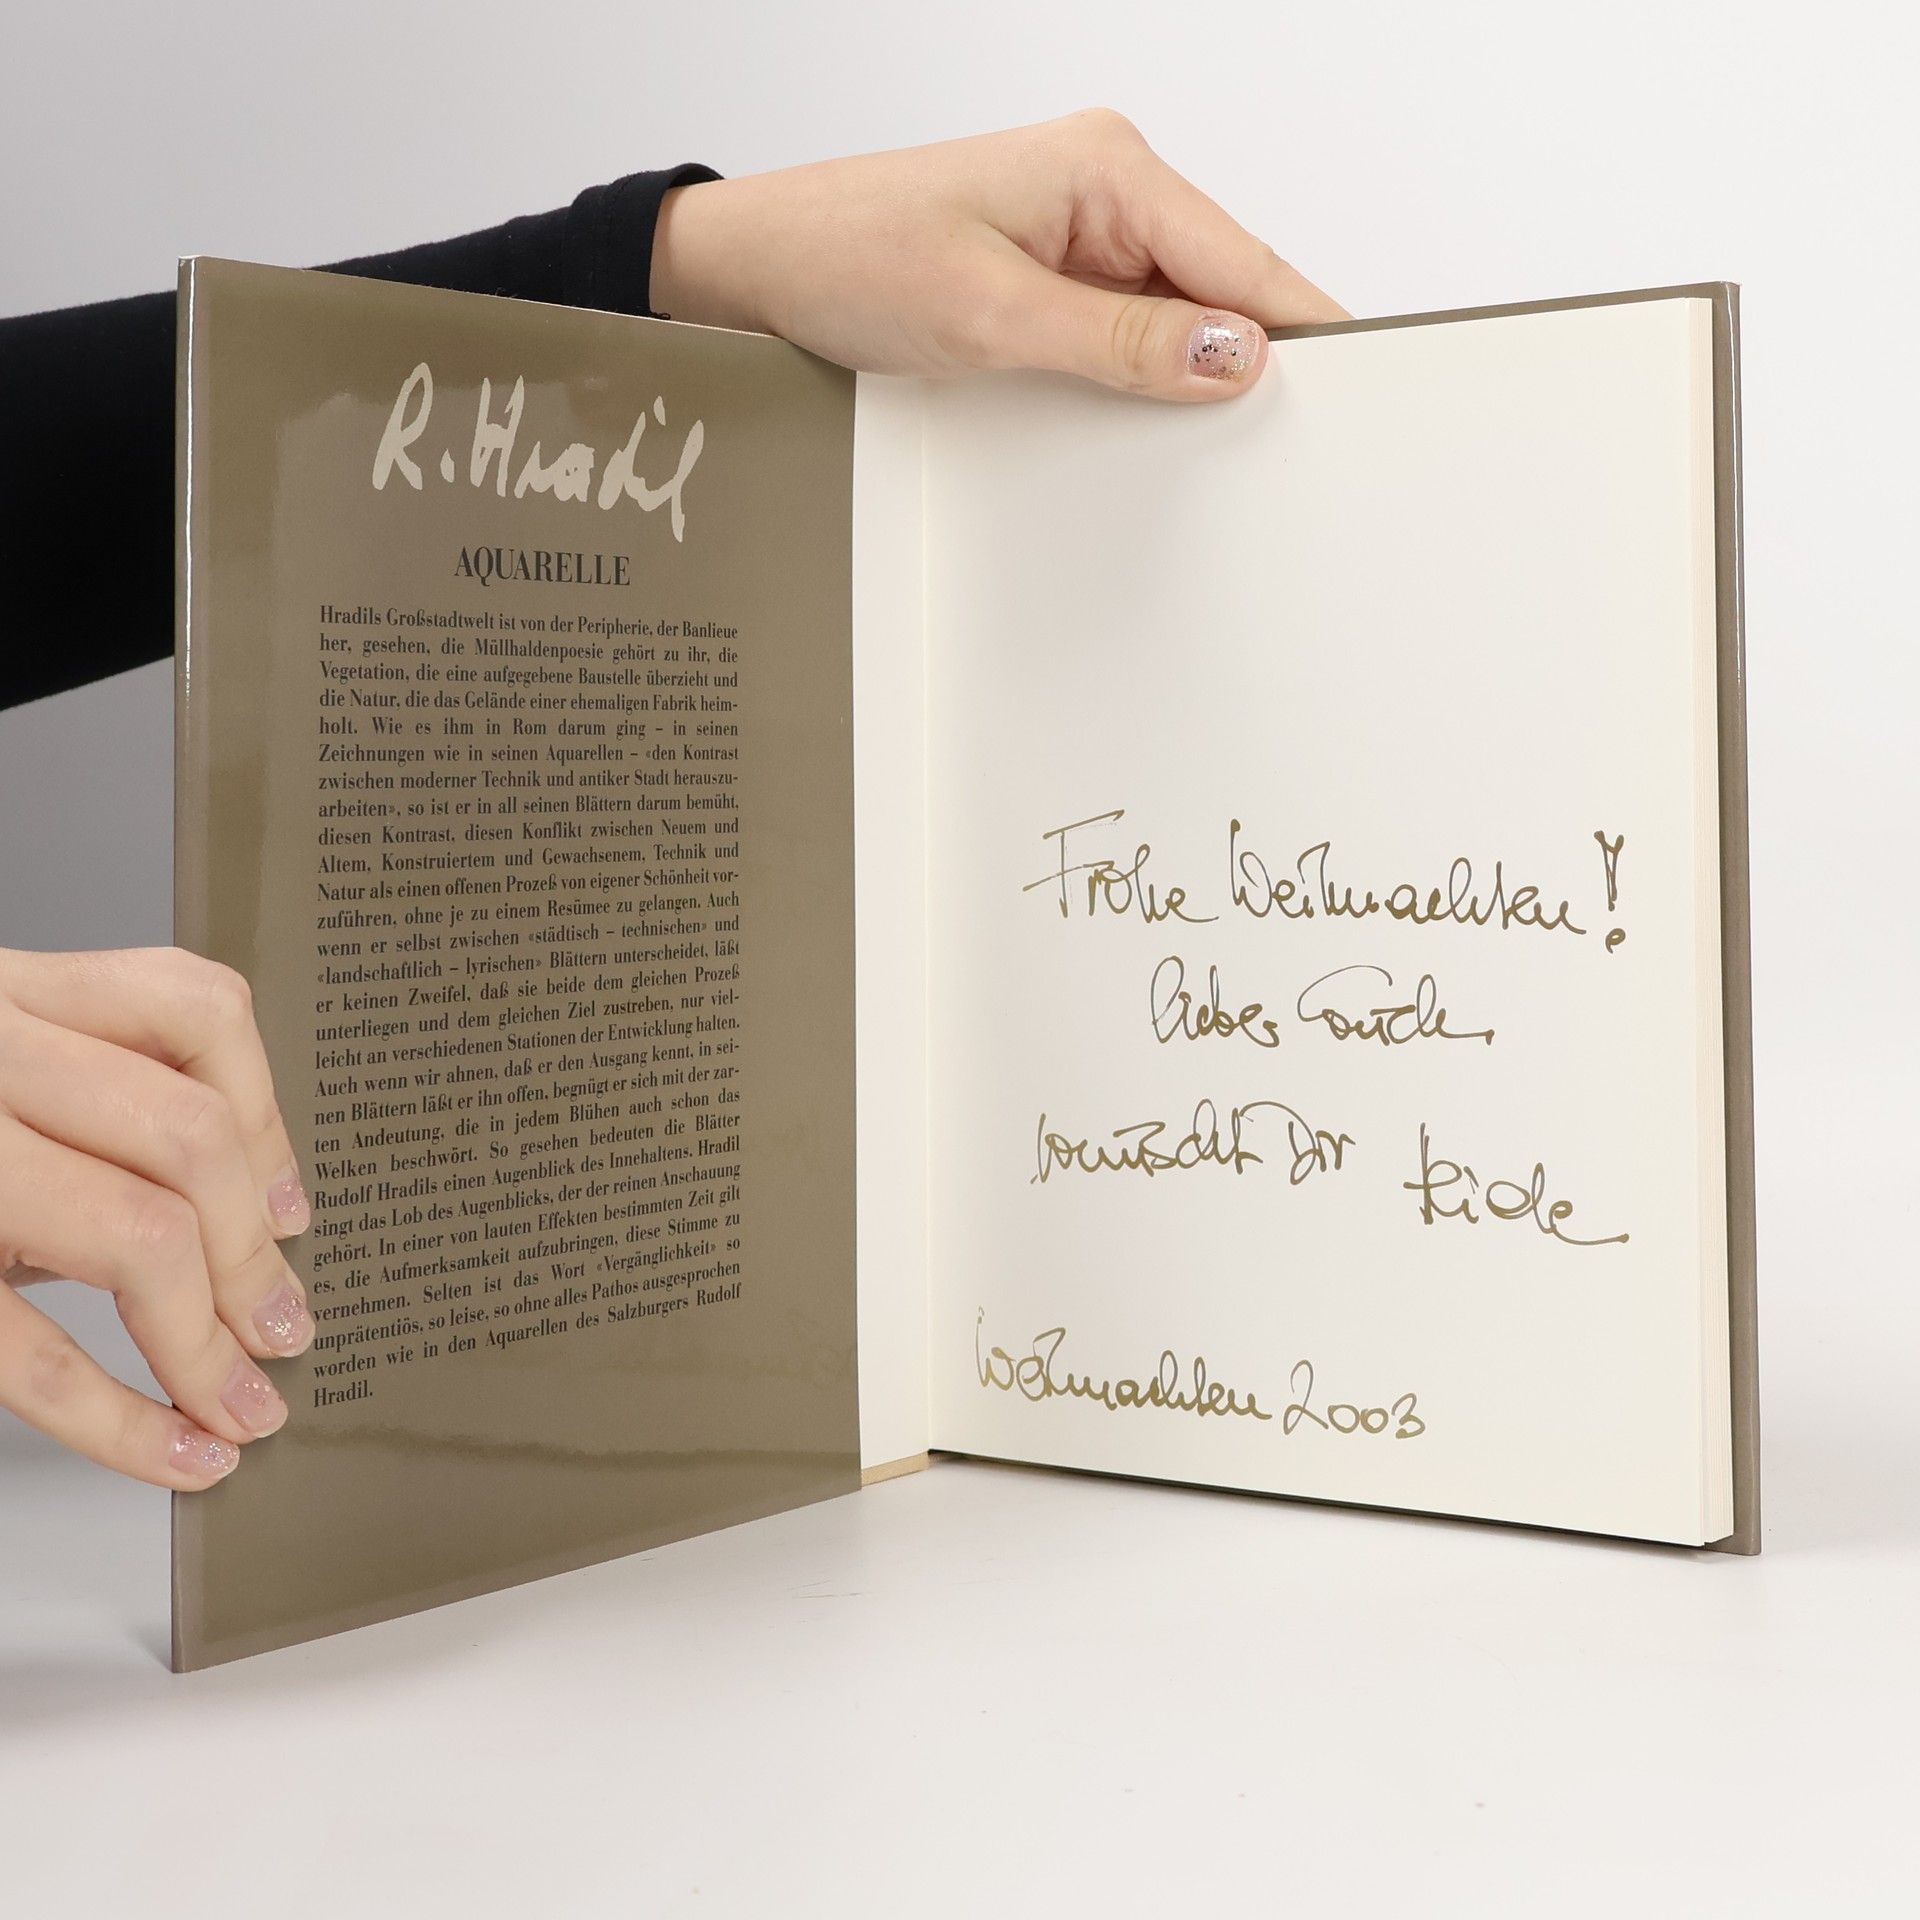 R. Hradil
AQUARELLE
Hradils Großstadtwelt ist von der Peripherie, der Banlieue
her, gesehen, die Müllhaldenpoesie gehört zu ihr, die
Vegetation, die eine aufgegebene Baustelle überzieht und
die Natur, die das Gelände einer ehemaligen Fabrik heim-
holt. Wie es ihm in Rom darum ging – in seinen
Zeichnungen wie in seinen Aquarellen – «den Kontrast
zwischen moderner Technik und antiker Stadt herauszu-
arbeiten», so ist er in all seinen Blättern darum bemüht,
diesen Kontrast, diesen Konflikt zwischen Neuem und
Altem, Konstruiertem und Gewachsenem, Technik und
Natur als einen offenen Prozeß von eigener Schönheit vor-
zuführen, ohne je zu einem Resümee zu gelangen. Auch
wenn er selbst zwischen «städtisch – technischen» und
«landschaftlich – lyrischen» Blättern unterscheidet, läßt
er keinen Zweifel, daß sie beide dem gleichen Prozeß
unterliegen und dem gleichen Ziel zustreben, nur viel-
leicht an verschiedenen Stationen der Entwicklung halten.
Auch wenn wir ahnen, daß er den Ausgang kennt, in sei-
nen Blättern läßt er ihn offen, begnügt er sich mit der zar-
ten Andeutung, die in jedem Blühen auch schon das
Welken beschwört. So gesehen bedeuten die Blätter
Rudolf Hradils einen Augenblick des Innehaltens. Hradil
singt das Lob des Augenblicks, der der reinen Anschauung
gehört. In einer von lauten Effekten bestimmten Zeit gilt
es, die Aufmerksamkeit aufzubringen, diese Stimme zu
vernehmen. Selten ist das Wort «Vergänglichkeit» so
unprätentiös, so leise, so ohne alles Pathos ausgesprochen
worden wie in den Aquarellen des Salzburgers Rudolf
Hradil.
Frohe Weihnachten!
lieber
wünscht Dir
Weihnachten 2003